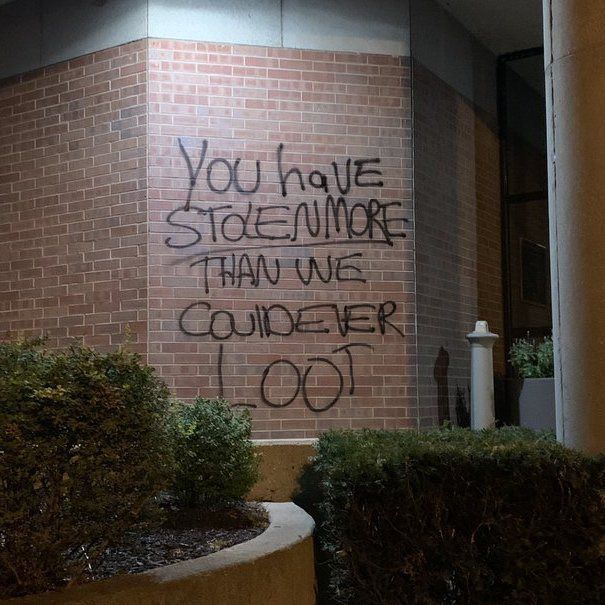 YOU haVE
STOLEN MORE
THAN WE
COULD EVER
LOOT